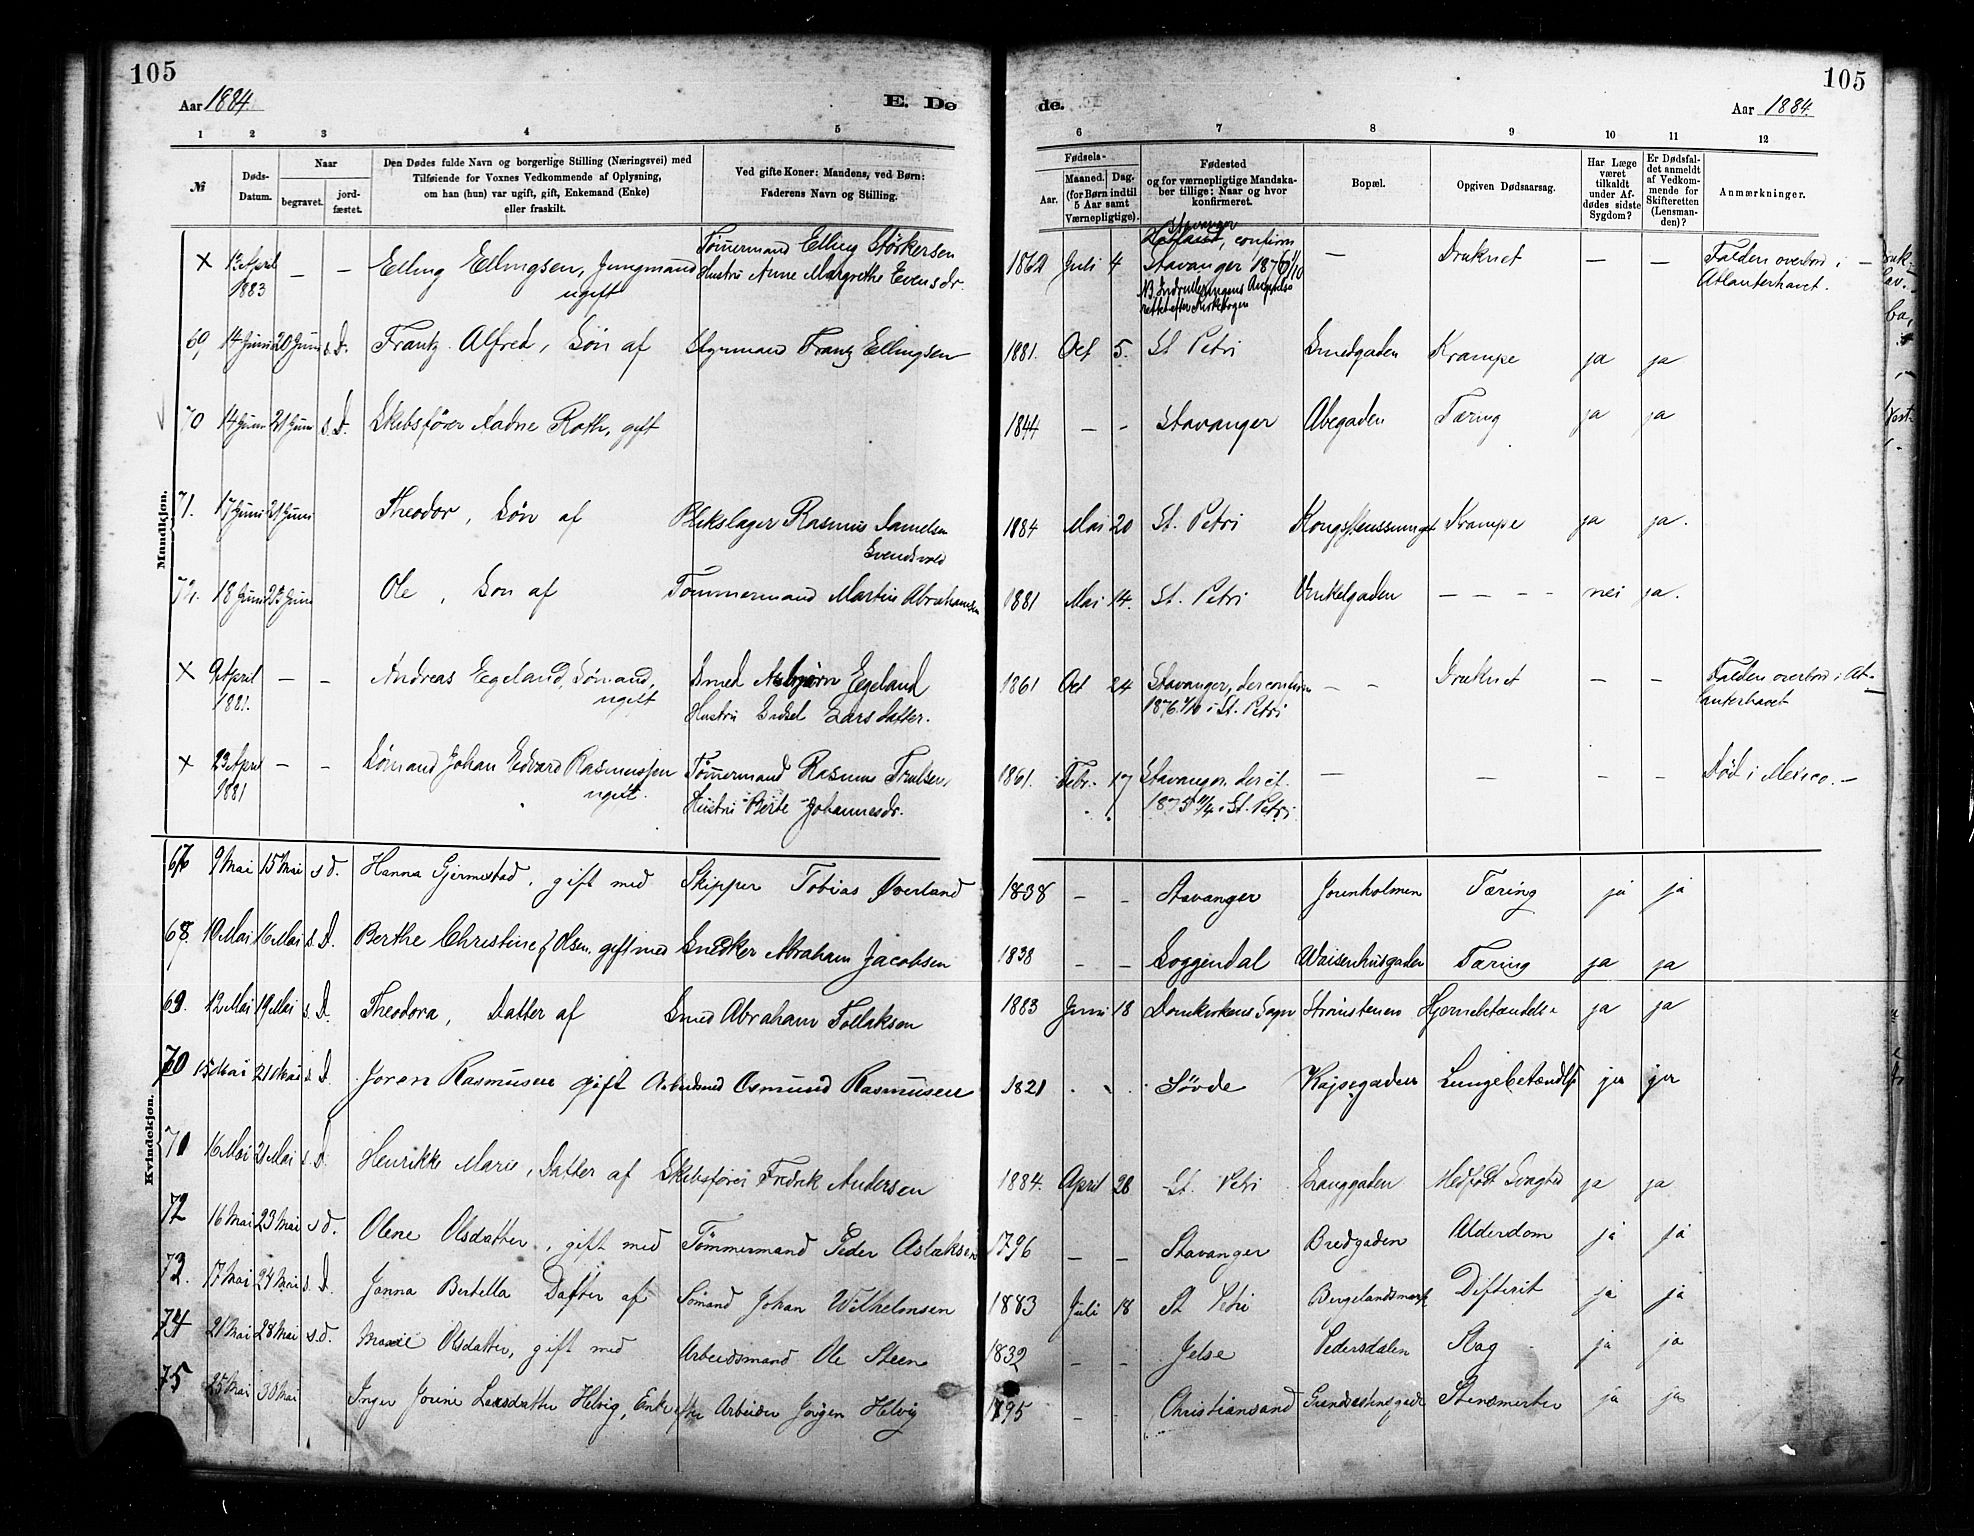 105
105
Aar 1884.
E. Dø
de.
Aar 1884.
1 2 3 4 5 6 7 8 9 10 11 12
№
Døds-Datum.
Naar
begravet.
jord-fæstet.
Den Dødes fulde Navn og borgerlige Stilling (Næringsvei) med
Tilføiende for Voxnes Vedkommende af Oplysning,
om han (hun) var ugift, gift, Enkemand (Enke)
eller fraskilt.
Ved gifte Koner: Mandens, ved Børn:
Faderens Navn og Stilling.
Fødsels-
Aar.
Maaned. Dag.
(for Børn indtil
5 Aar samt
Værnepligtige).
Fødested
og for værnepligtige Mandska-
ber tillige: Naar og hvor
konfirmeret.
Bopæl.
Opgiven Dødsaarsag.
Har Læge
været
tilkaldt
under Af-
dødes sidste
Sygdom?
Er Dødsfal-
det anmeldt
af Vedkom-
mende for
Skifteretten
(Lensman-
den)?
Anmærkninger.
Mandkjøn.
× 13 April 1883 – – Elling Ellingsen, Jungmand ugift Tømmermand Elling Størkersen Hustru Anne Margrethe Evensdr. 1862 Juli 4 Stavanger, confirm Stavanger – Druknet – – Falden overbord i Atlanterhavet.
69 14 Juni 20 Juni s. D. Frantz Alfred, Søn af Styrmand Frantz Ellingsen 1881. Oct 5. St Petri Smedgaden Krampe ja ja
70 14 Juni 21 Juni s. D. Skibsfører Aadne Roth, gift 1844 – – Stavanger Abegaden Tæring ja ja
71. 17 Juni 21 Juni Theodor, Søn af Blikslager Rasmus Aanensen Svendsvold 1884 Mai 20 St. Petri Krampe ja ja.
72. 18 Juni 23 Juni Ole, Søn af Tømmermand Martin Abrahamsen 1881 Mai 14. St. Petri Vinkelgaden – – – – nei ja.
× 9 April 1881. – – Andreas Egeland, Sømand, ugift Smed Asbjørn Egeland Hustru Sidsel Larsdatter. 1861 Oct 24 Stavanger, der confirm 1876 1/10 i St. Petri – – Druknet – – Falden overbord i Atlanterhavet
× 23 April 1881 – – Sømand Johan Edvard Rasmussen ugift. Tømmermand Rasmus Trulsen, Hustru Berte Johannesdr. 1861. Febr. 17 Stavanger, der cf. 1875 11/4 i St. Petri – – – – Død i Mexico. –
Kvindekjøn.
67 9 Mai 15 Mai s d. Hanna Gjermestad, gift med Skipper Tobias Øverland 1838 – – Stavanger Jorenholmen Tæring ja ja
68. 10 Mai 16 Mai s. D. Berthe Christine f. Olsen, gift med Snedker Abraham Jacobsen 1838 – – Soggendal Waisenhusgaden Tæring ja ja
69. 12 Mai 19 Mai s. D. Theodora, Datter af Smed Abraham Tollaksen 1883 Juni 18 Domkirkens Sogn Strømstenen Hjernebetændelse ja ja
70 15 Mai 21 Mai s D. Joren Rasmusen gift Arbeidsmd Osmund Rasmusen 1821 Søvde Kajsegaden Lungebetændelse ja ja
71 16 Mai 21 Mai s. D. Henrikke Marie, Datter af Skibsfører Fredrik Andersen 1884. April 28 St. Petri Langgaden Medfødt Svaghed ja ja
72 16 Mai 23 Mai s d. Olene Olsdatter, gift med Tømmermand Peder Aslaksen 1796 – – Stavanger Bredgaden Alderdom ja ja
73. 17 Mai 24 Mai s. D. Janna Bertella Datter af Sømand Johan Wilhelmsen 1883 Juli 18 St Petri Difterit ja ja
74 21 Mai 28 Mai s. d. Olsdatter, gift med Arbeidsmand Ole Steen 1832 – – Jelse Pedersdalen Slag ja ja
75 25 Mai 30 Mai Inger Jorine Larsdatter Helvig, Enke efter Arbeider Jørgen Helvig 1795 – Christiansand ja ja